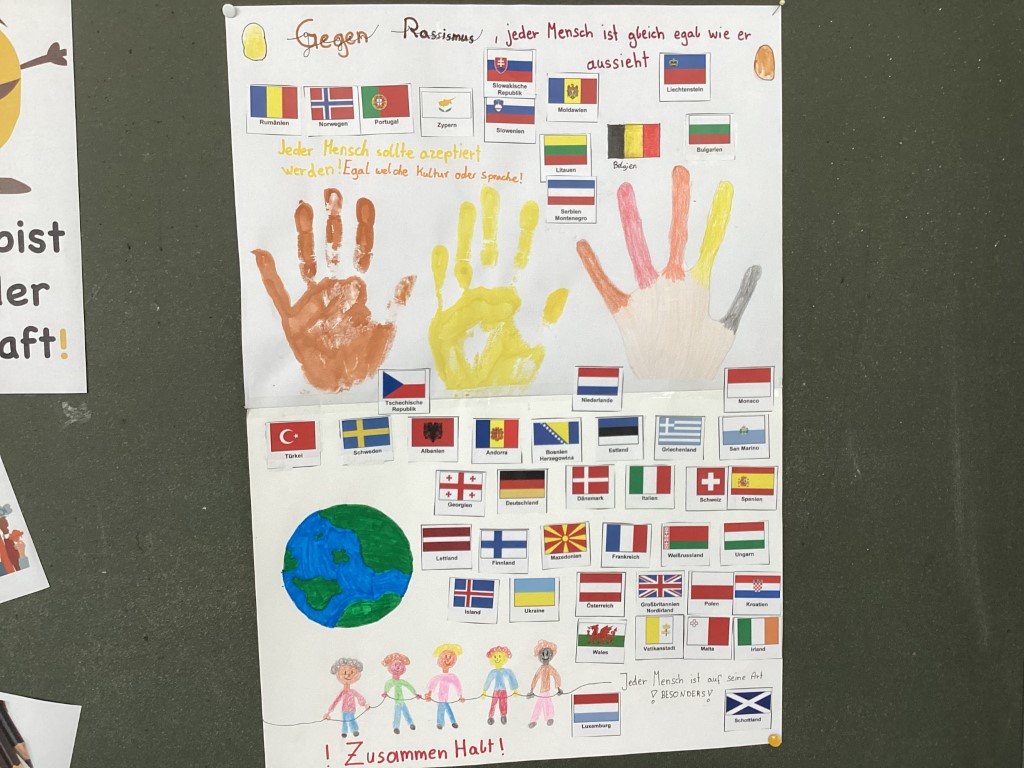 Gegen Rassismus, jeder Mensch ist gleich egal wie er
aussieht
Slowakische
Republik
Liechtenstein
Moldawien
Rumänien
Norwegen
Portugal
Zypern
Slowenien
Belgien
Bulgarien
Litauen
Jeder Mensch sollte azeptiert
werden! Egal welche Kultur oder sprache!
Serbien
Montenegro
bist
der
aft!
Tschechische
Republik
Niederlande
Monaco
Türkei
Schweden
Albanien
Andorra
Bosnien
Herzegowina
Estland
Griechenland
San Marino
Georgien
Deutschland
Dänemark
Italien
Schweiz
Spanien
Lettland
Finnland
Mazedonien
Frankreich
Weißrussland
Ungarn
Island
Ukraine
Österreich
Großbritannien
Nordirland
Polen
Kroatien
Wales
Vatikanstadt
Malta
Irland
Jeder Mensch ist auf seine Art
! BESONDERS!
Luxemburg
Schottland
! Zusammen Halt!